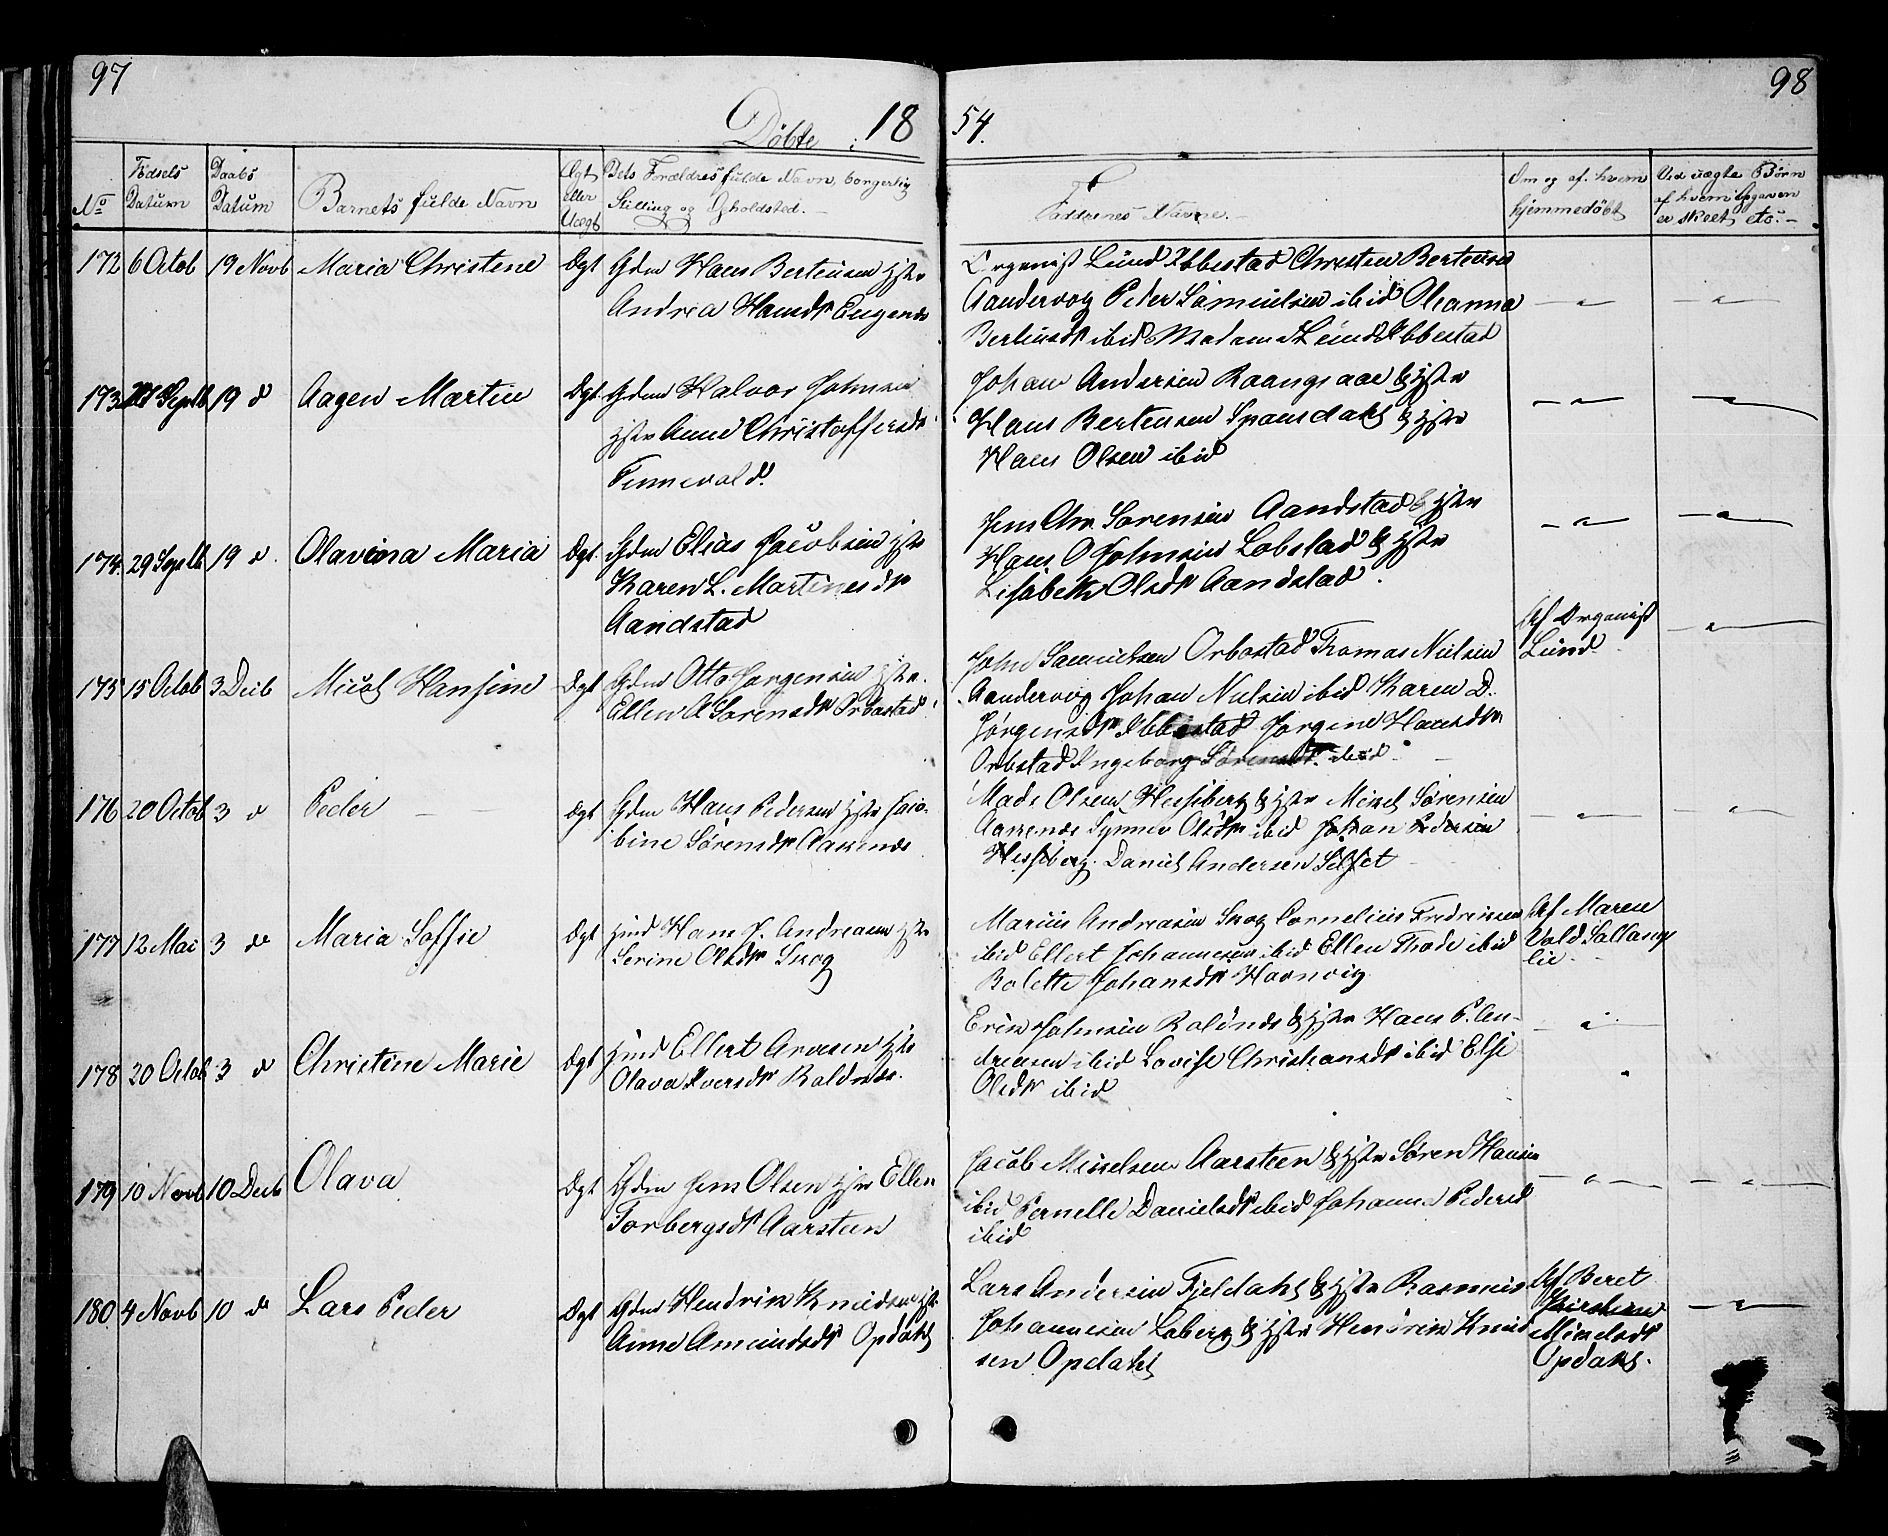 97
98
Döbte 1854.
No
Fødsels Datum
Daabs Datum
Barnets fulde Navn
Ægt eller Uægt
Dets Forældres fulde Navn, borgerlig
Stilling og Opholdsted.
Faddernes Navne.
Om og af hvem
hjemmedöbt
Ved uægte Børn
af hvem Opgaven
er skeet etc.
172 6 Octob 19 Novb Maria Christine Ægt Gdm Hans Bertensen Hstr
Andrea Hansdr Engenæs
Organist Lund Ibbestad Christen Bertensen
Aandervog Peder Samuelsen ibid Oleanna
Bertensdr ibid Madame Lund Ibbestad
173 Septb 19 d Aagen Martin Ægt Gdm Halvor Johnsen
Hstr Anne Christoffersdr
Tennevold.
Johan Andersen Raangsaae & Hstr
Hans Bertensen Spansdahl & Hstr
Hans Olsen ibid
174 29 Septb 19 d. Olavina Maria Ægt. Gdm Elias Jacobsen Hstr
Karen L. Martinesdr
Aandstad
Jens Chr. Sorensen Aandstad & Hstr
Hans O Johnsen Lobstad & Hstr
Lisabeth Olsdr Aandstad.
175 15 Octob 3 Decb Micol Hansine Ægt Gdm Otto Jorgensen Hstr.
Ellen A Sorensdr Orbostad
John Samuelsen Orbostad Thomas Nielsen
Aandervog Johan Nielsen ibid Karen D.
Jørgensdr Ibbestad Jorgine Hansdr
Orbstad Ingeborg Sørensdr ibid
Af Organist
Lund
176 20 Octob 3 d Peder Ægt Gdm Hans Pedersen Hstr Jaco-
bine Sørensdr Aannæs
Mads Olsen Hessberg & Hstr Mikel Sørensen
Synnev Olsdr ibid Johan Pedersen
Hessberg. Daniel Andersen Selset
177 12 Mai 3 d Maria Soffie Ægt Hmd Hans J. Andreasen Hstr
Serine Olsdr Skog
Marius Andreasen Skog Cornelius Fredriksen
ibid Ellert Johannesen ibid Ellen Thode ibid
Bolette Johansdr Havnvig
Af Maren
Vold Sallangs
lie.
178 20 Octob 3 d Christine Marie Ægt Hmd Ellert Arnesen Hstr
Olava Iversdr Roldnæs.
Erik Johnsen Roldnæs & Hstr Hans P. An-
dreasen ibid Lovise Christiansdr ibid Else
Olsdr ibid
179 10 Novb 10 Decb Olava Ægt Gdm Jens Olsen Hstr Ellen
Torbergsdr Aarsteen
Jacob Mikelsen Aarsteen & Hstr Søren Hansen
ibid Pernelle Danielsdr ibid Johanna Pedersd
ibid
180 4 Novb 10 d Lars Peder Ægt Gdm Hendrik Knudsen Hstr
Anne Amundsdr Opdahl
Lars Andersen Fjeldahl & Hstr Rasmus
Johannesen Loberg & Hstr Hendrik Knud
sen Opdahl
Af Beret
Mikelsdr
Opdahl.